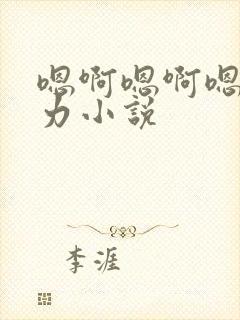 嗯啊嗯啊嗯
力小説
李涯